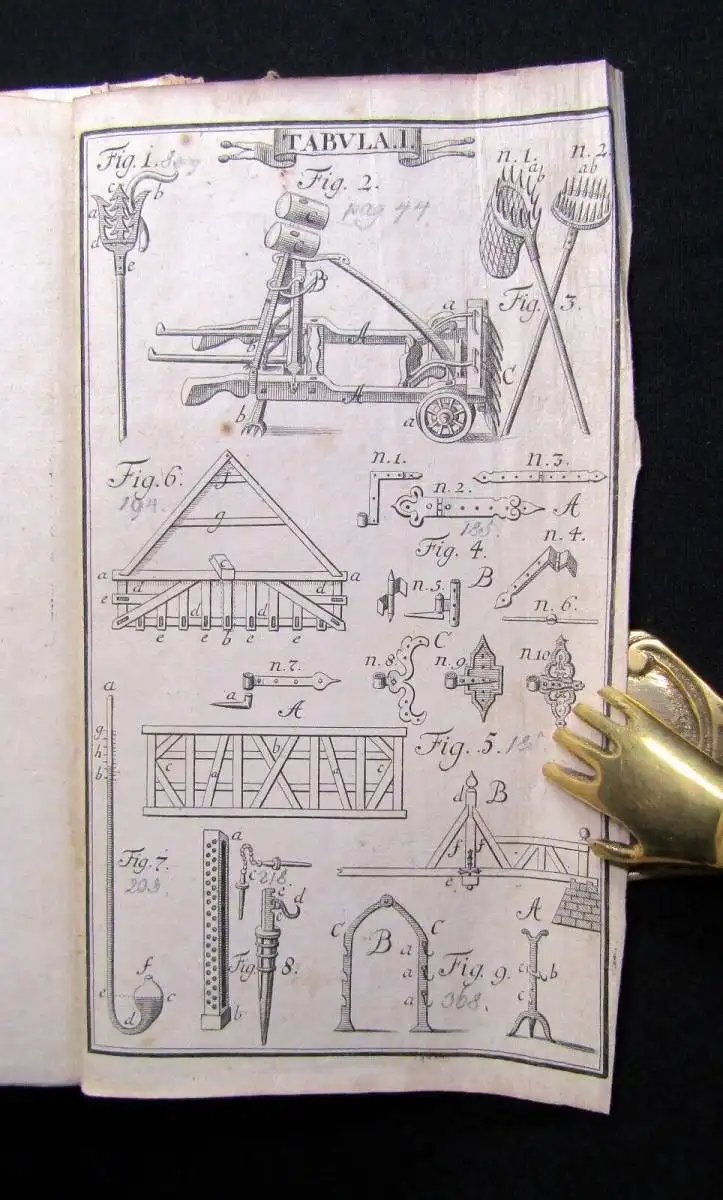 TABVLA. I.
Fig. 1.
Fig. 2.
pag 44
n. 1.
n. 2
a b
a b
c
a
b
d
e
B
a
Fig. 3.
A
b
C
A
b
a
Fig. 6.
194.
f
g
n. 1.
n. 3.
n. 2.
A
185.
Fig. 4.
n. 4.
a
a
d
d
e
e
d
d
e
e
b
e
e
n. 5.
B
n. 6.
n. 7.
a
A
n. 8.
C
n. 9.
n. 10.
a
g
h
b
c
a
b
a
c
Fig. 5.
d
B
f
f
e
Fig. 7.
203.
a
c
218.
e
d
c
Fig. 8.
b
f
e
c
d
C
B
C
a
a
a
Fig. 9.
368.
A
c
b
c